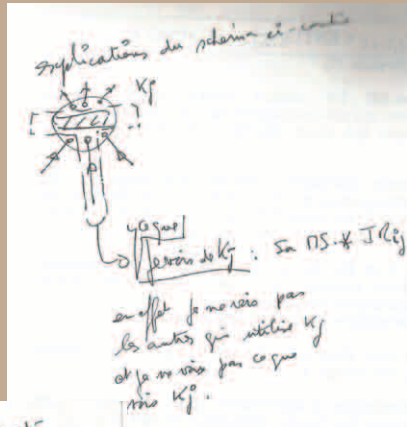 explications du schéma ci-contre
Kj
! ?
ce que
je vois de Kj : sa DS * JRij
en effet je ne vois pas
les autres qui utilise Kj
et je ne vois pas ce que
vois Kj.